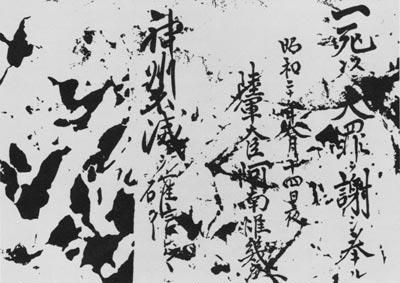 一死以大罪謝シ奉ル
昭和二十年八月十四日夜
陸軍大臣阿南惟幾
神州不滅ヲ確信シツヽ